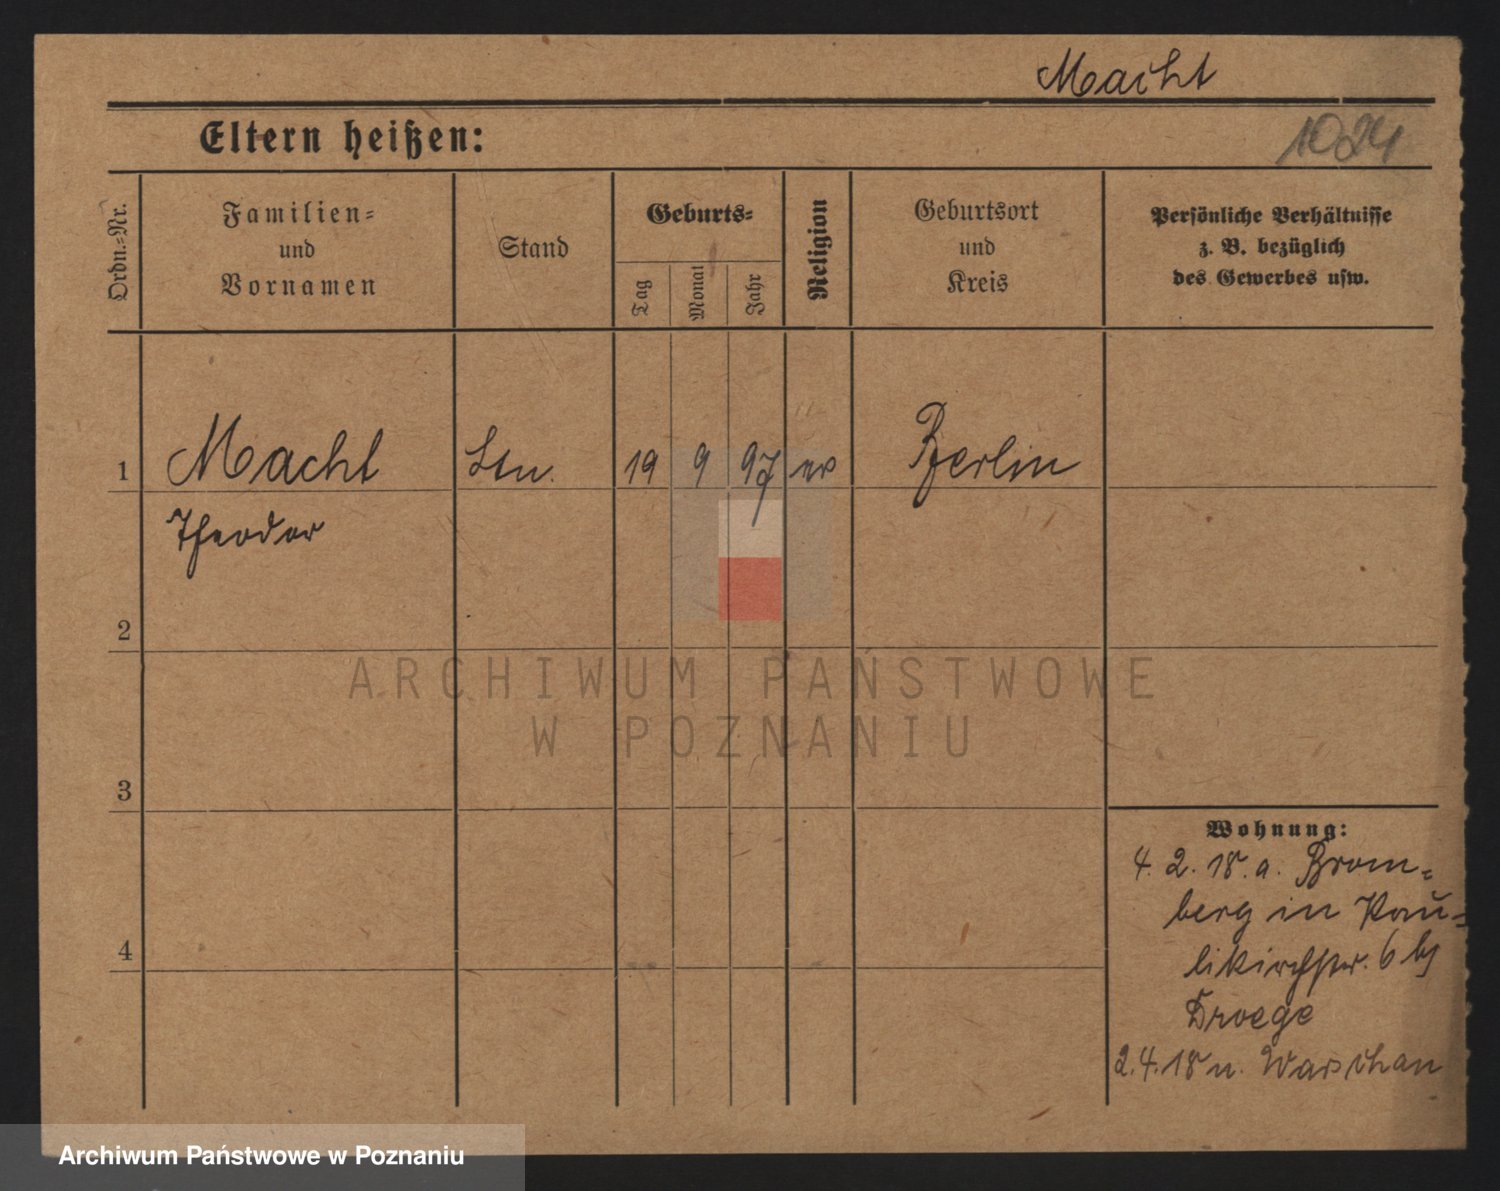 Macht
Eltern heißen:
1024
Ordn.-Nr.
Familien-
und
Vornamen
Stand
Geburts-
Tag
Monat
Jahr
Religion
Geburtsort
und
Kreis
Persönliche Verhältnisse
z. B. bezüglich
des Gewerbes usw.
1 Macht Ltn. 19 9 97 ev Berlin
Theodor
2
ARCHIWUM PAŃSTWOWE
W POZNANIU
3
Wohnung:
4. 2. 18. a. Brom-
berg in Pau-
4
likirchstr. 6 bj
Droege
2. 4. 18 n. Warschau
Archiwum Państwowe w Poznaniu